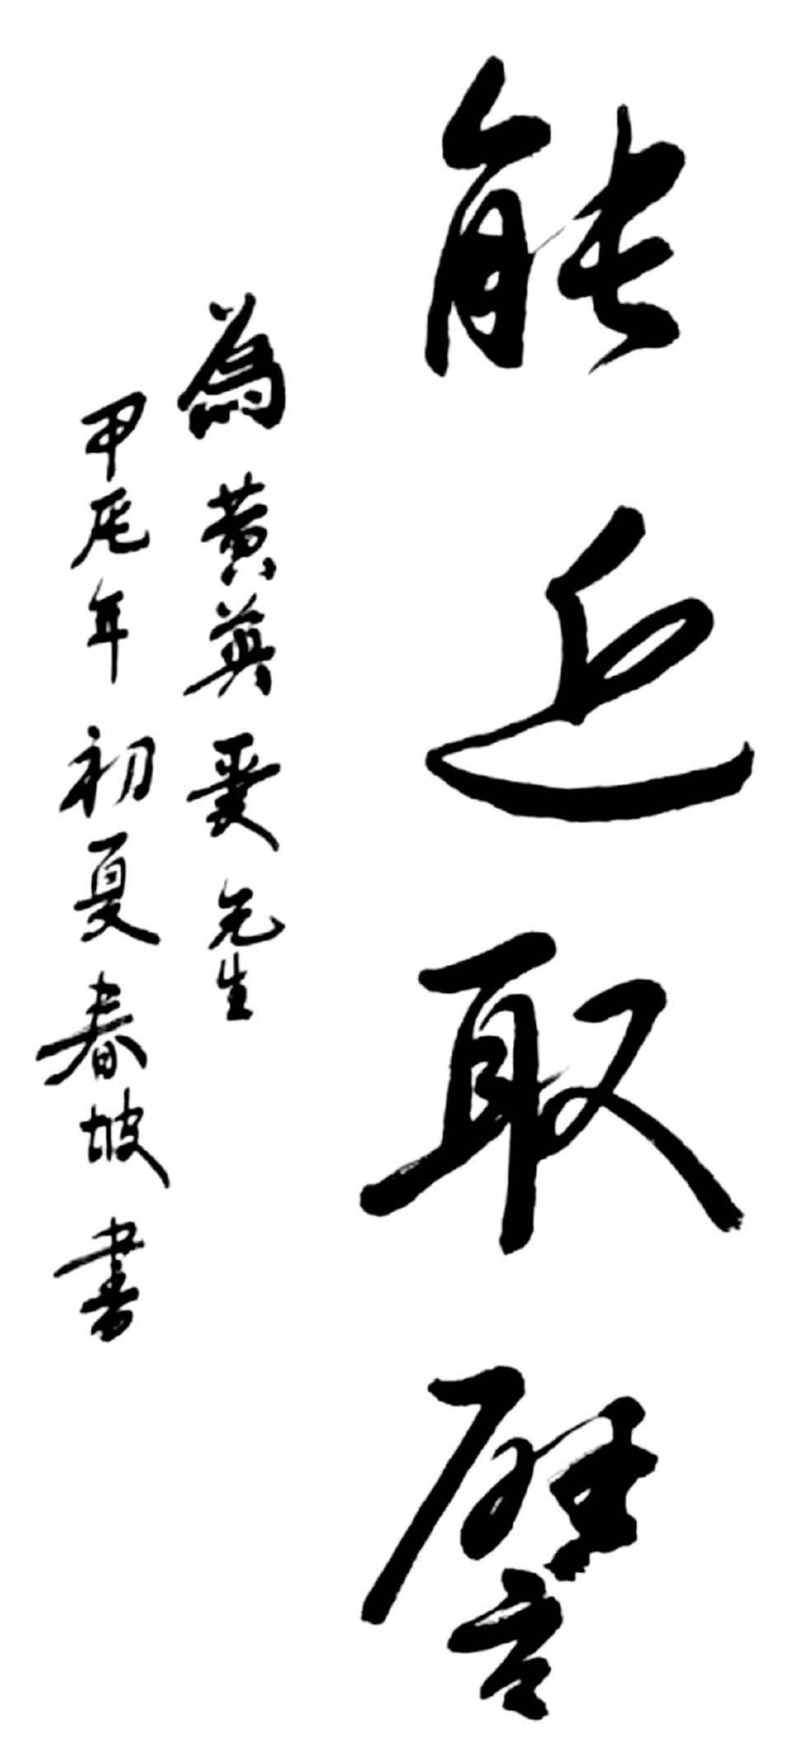 能近取譬
為黄英先生
甲辰年初夏春坡書